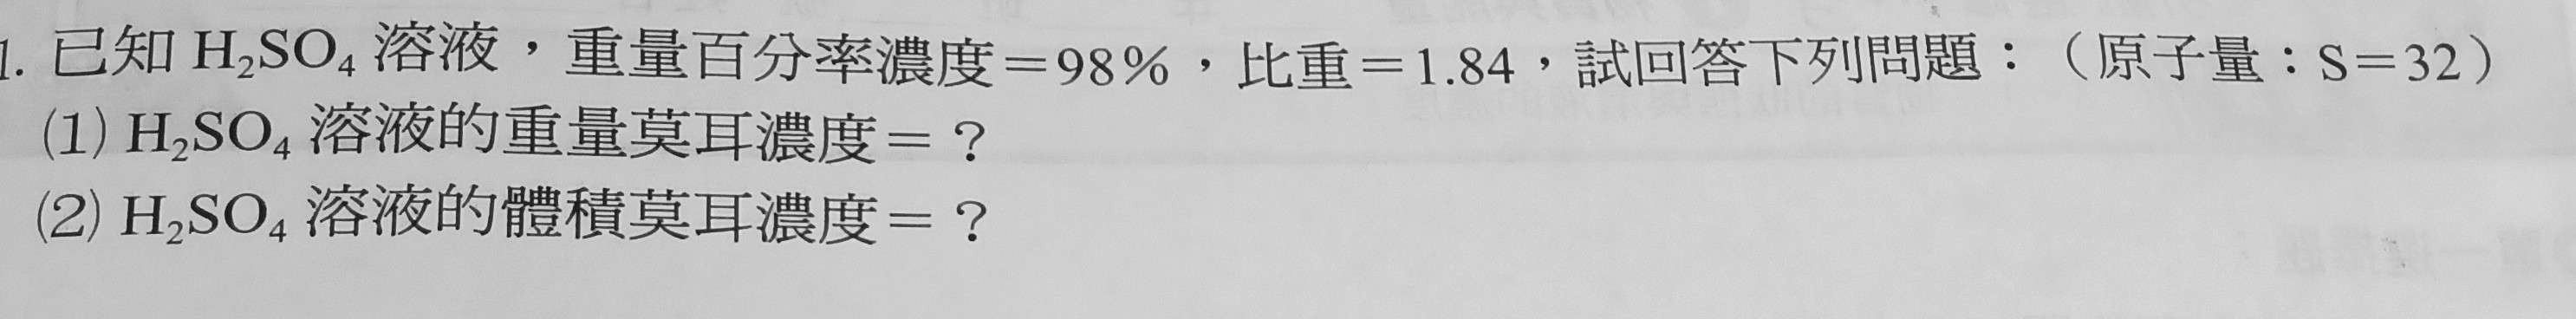 1. 已知 H₂SO₄ 溶液，重量百分率濃度＝98％，比重＝1.84，試回答下列問題：（原子量：S＝32）
(1) H₂SO₄ 溶液的重量莫耳濃度＝？
(2) H₂SO₄ 溶液的體積莫耳濃度＝？